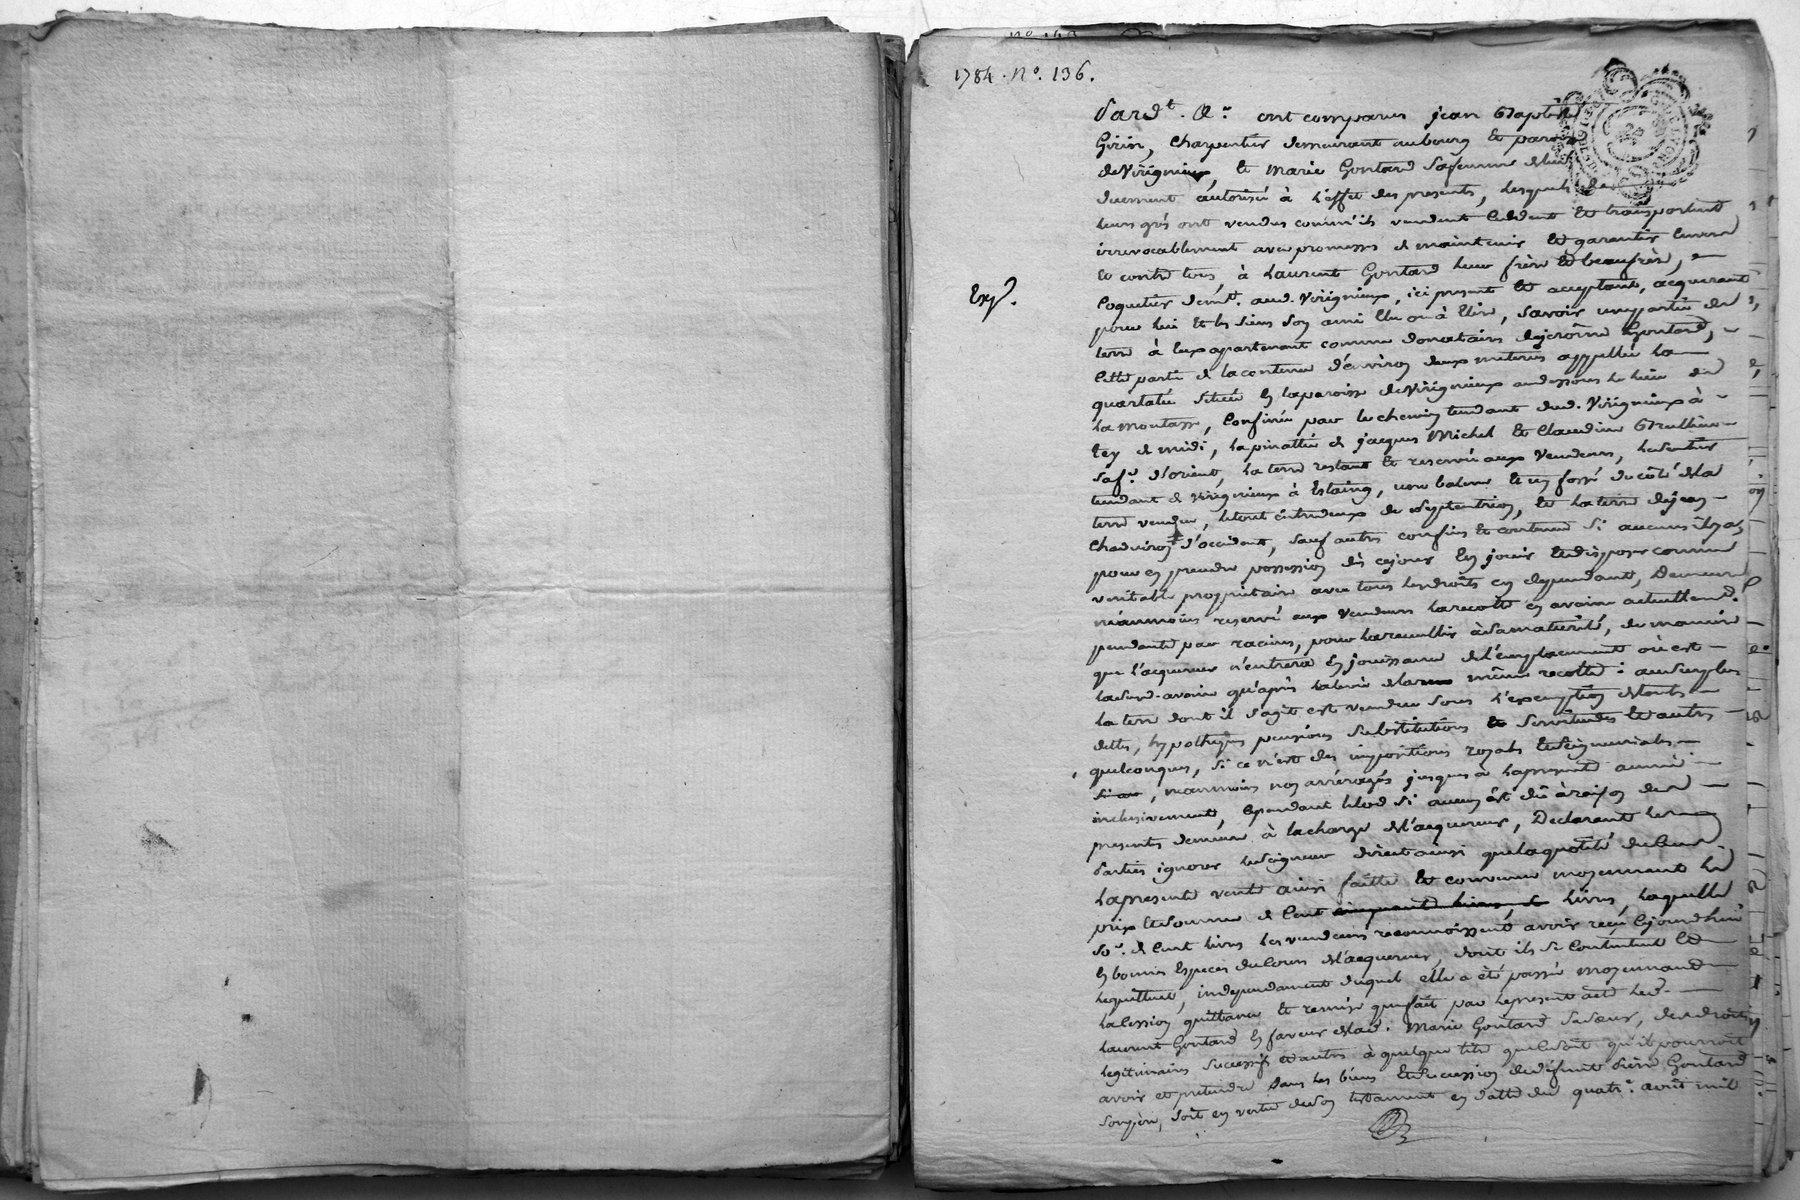 1784. N°. 136.
Pard.t &.e ont comparus jean Baptiste
Girin, Charpentier demeurant au bourg et paroisse
de Virigneux, et Marie Gontard sa femme de lui
duement autorisée à l'effet des presents, lesquels de
leurs grés ont vendus comm'ils vendent cedent et transportent
irrevocablement avec promesses de maintenir et garentir envers
et contre tous, à Laurent Gontard leur frère et beaufrère,
Exp.
Coquetier demt. aud. Virigneux, ici present et acceptant, acquerant
pour lui et les siens son ami élu ou à élire, savoir une partie de
terre à eux apartenant comme donataire de jerôme Gontard,
cette partie de la contenue d'environ deux meteres appellée la
quartalée située en la paroisse de Virigneux au dessous le lieu de
la Montasse, confinée par le chemin tendant dud. Virigneux à
de midi, la pinattée de jacques Michel et Claudine Brullion
sa fe. d'orient, la terre restant et reservée aux Vendeurs, le sentier
tendant de Virigneux à Estaing, une balme et un fossé du côté de la
terre vendue, le tout entredeux de septentrion, et la terre de jean
Chadviron d'occident, sauf autres confins et contenue si aucuns il y a,
pour en prendre possession dès cejour en jouir et disposer comme
veritable proprietaire avec tous les droits en dependant, Demeure
néanmoins reservé aux Vendeurs la recolte en avoine actuellemt.
pendante par racines, pour la recueillir à sa maturité, de manière
que l'acquereur n'entrera en jouissance de l'emplacement où est
la susd. avoine qu'après la levée de la même recolte: au surplus
la terre dont il s'agit est vendue sous l'exemption de toutes
dettes, hypotheques pensions substitutions et servitudes et autres
quelconques, si ce n'est des impositions royales et seigneuriales
, néanmoins non arréragés jusques à la presente année
inclusivement, cependant le lod si aucun est dû à raison des
presentes demeure à la charge de l'acquereur, Declarant les
Parties ignorer le seigneur direct ainsi que la quotité du cens.
La presente vente ainsi faitte et convenue moyennant le
prix et somme de cent cinquante livres, de livres, laquelle
so.e de cent livres les vendeurs reconnoissent avoir reçu cejourdhui
en bonnes Especes du cours de l'acquereur, dont ils se contentent et
le quittent, independament duquel elle a été passée moyennant
la cession quittance et remise que fait par le present acte led.
Laurent Gontard en faveur de lad. Marie Gontard sa sœur, de ses droits
legitimaires successifs et autres à quelque titre que ce soit qu'il pourroit
avoir et pretendre dans les biens et succession de defunt Pierre Gontard
son père, soit en vertu de son testament en datte du quatre. août mil